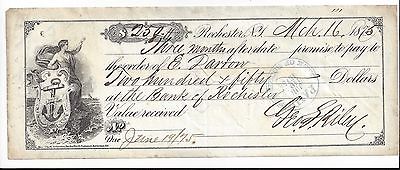 $ 250 Rochester, N.Y. Mch. 16 1875
Three months after date promise to pay to
the order of E. Darrow
Two hundred & fifty Dollars
at the Bank of Rochester
Value received
No Geo. S. Riley
Due June 19/75.